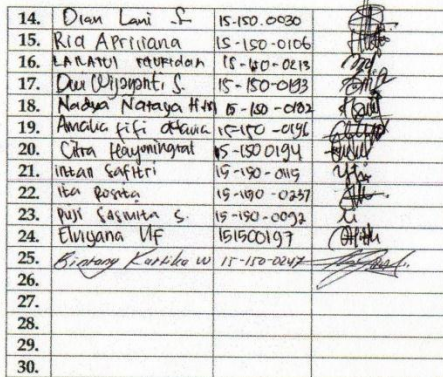 14. Dian Lani S 15-150.0030
15. Ria Apriliana 15-150-0106
16. 15-150-0213
17. Dwi Wijayanti S. 15-150-0193
18. Nadya Nataya H 15-150-0182
19. Amalia fifi oktavia 15-150-0196
20. Citra Hayuningrat 15-1500194
21. intan Safitri 15-150-0115
22. ita Rosita 15-150-0237
23. puji Sasmita S. 15-150-0092
24. Elviyana Uf 151500197
25. Bintang Kartika W 15-150-0247
26.
27.
28.
29.
30.